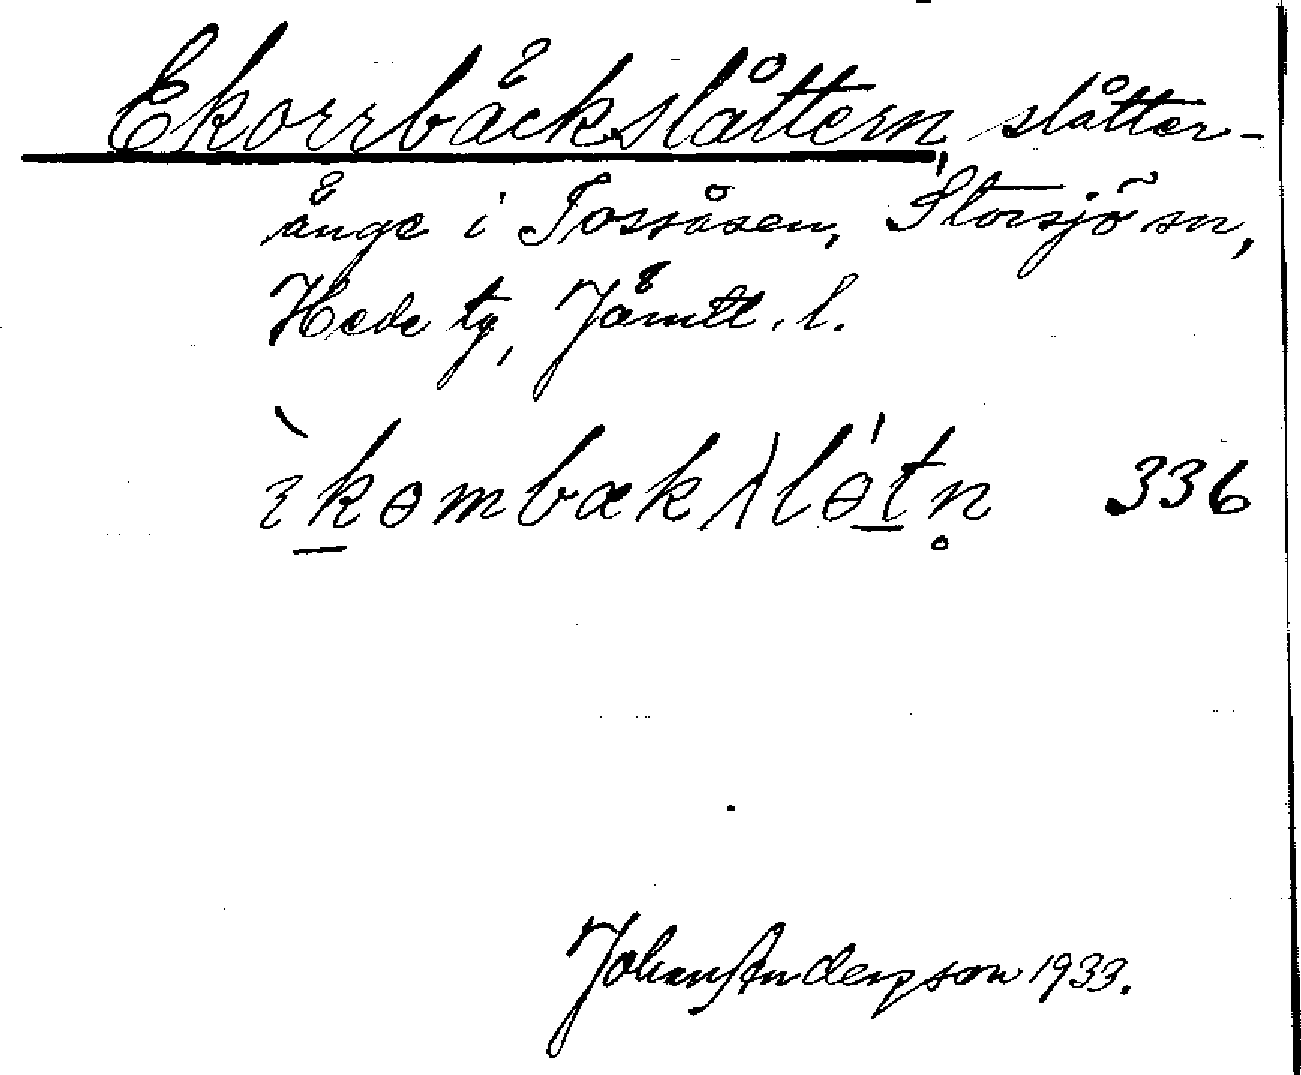 Ekorrbäckslåttern, slåtter-
änge i Tossåsen, Storsjö sn,
Hede tg, Jämtl. l.
ìkɵmbækslɵ́tn̥ 336
Johan Anderson 1933.